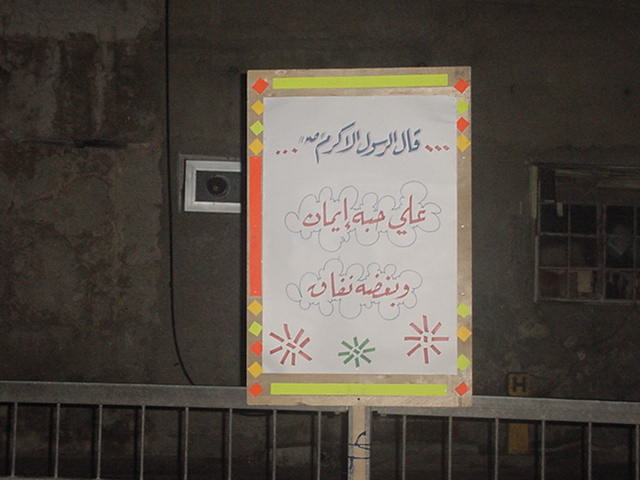 ... قال الرسول الاكرم "ص" ...
علي حبه إيمان
وبغضه نفاق
H